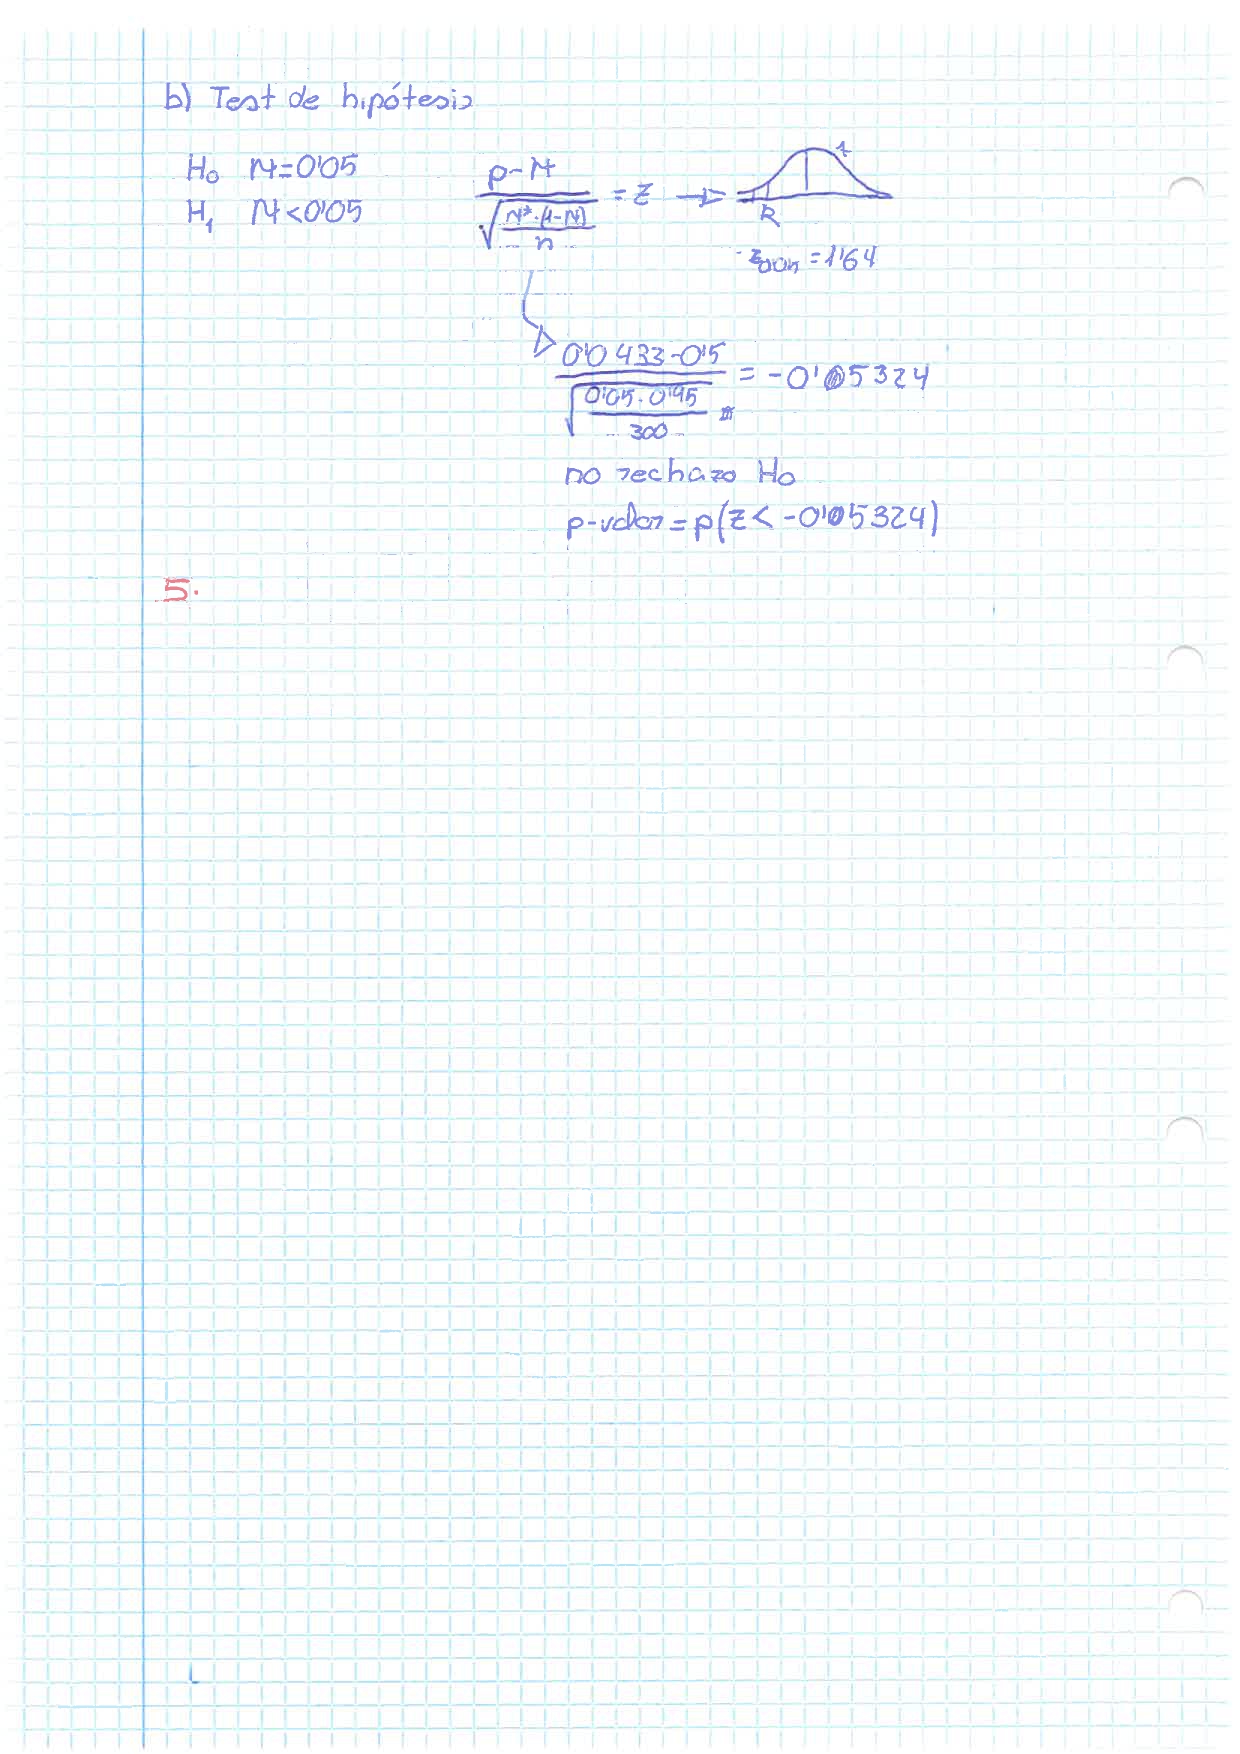 b) Test de hipótesis
H₀ π=0'05
H₁ π<0'05
p-π / √(π*·(1-π) / n) = Z →
R
-z₀'₀₅ = 1'64
0'0433-0'5 / √(0'05·0'95 / 300) = -0'05324
no rechazo H₀
p-valor = p(Z < -0'05324)
5.